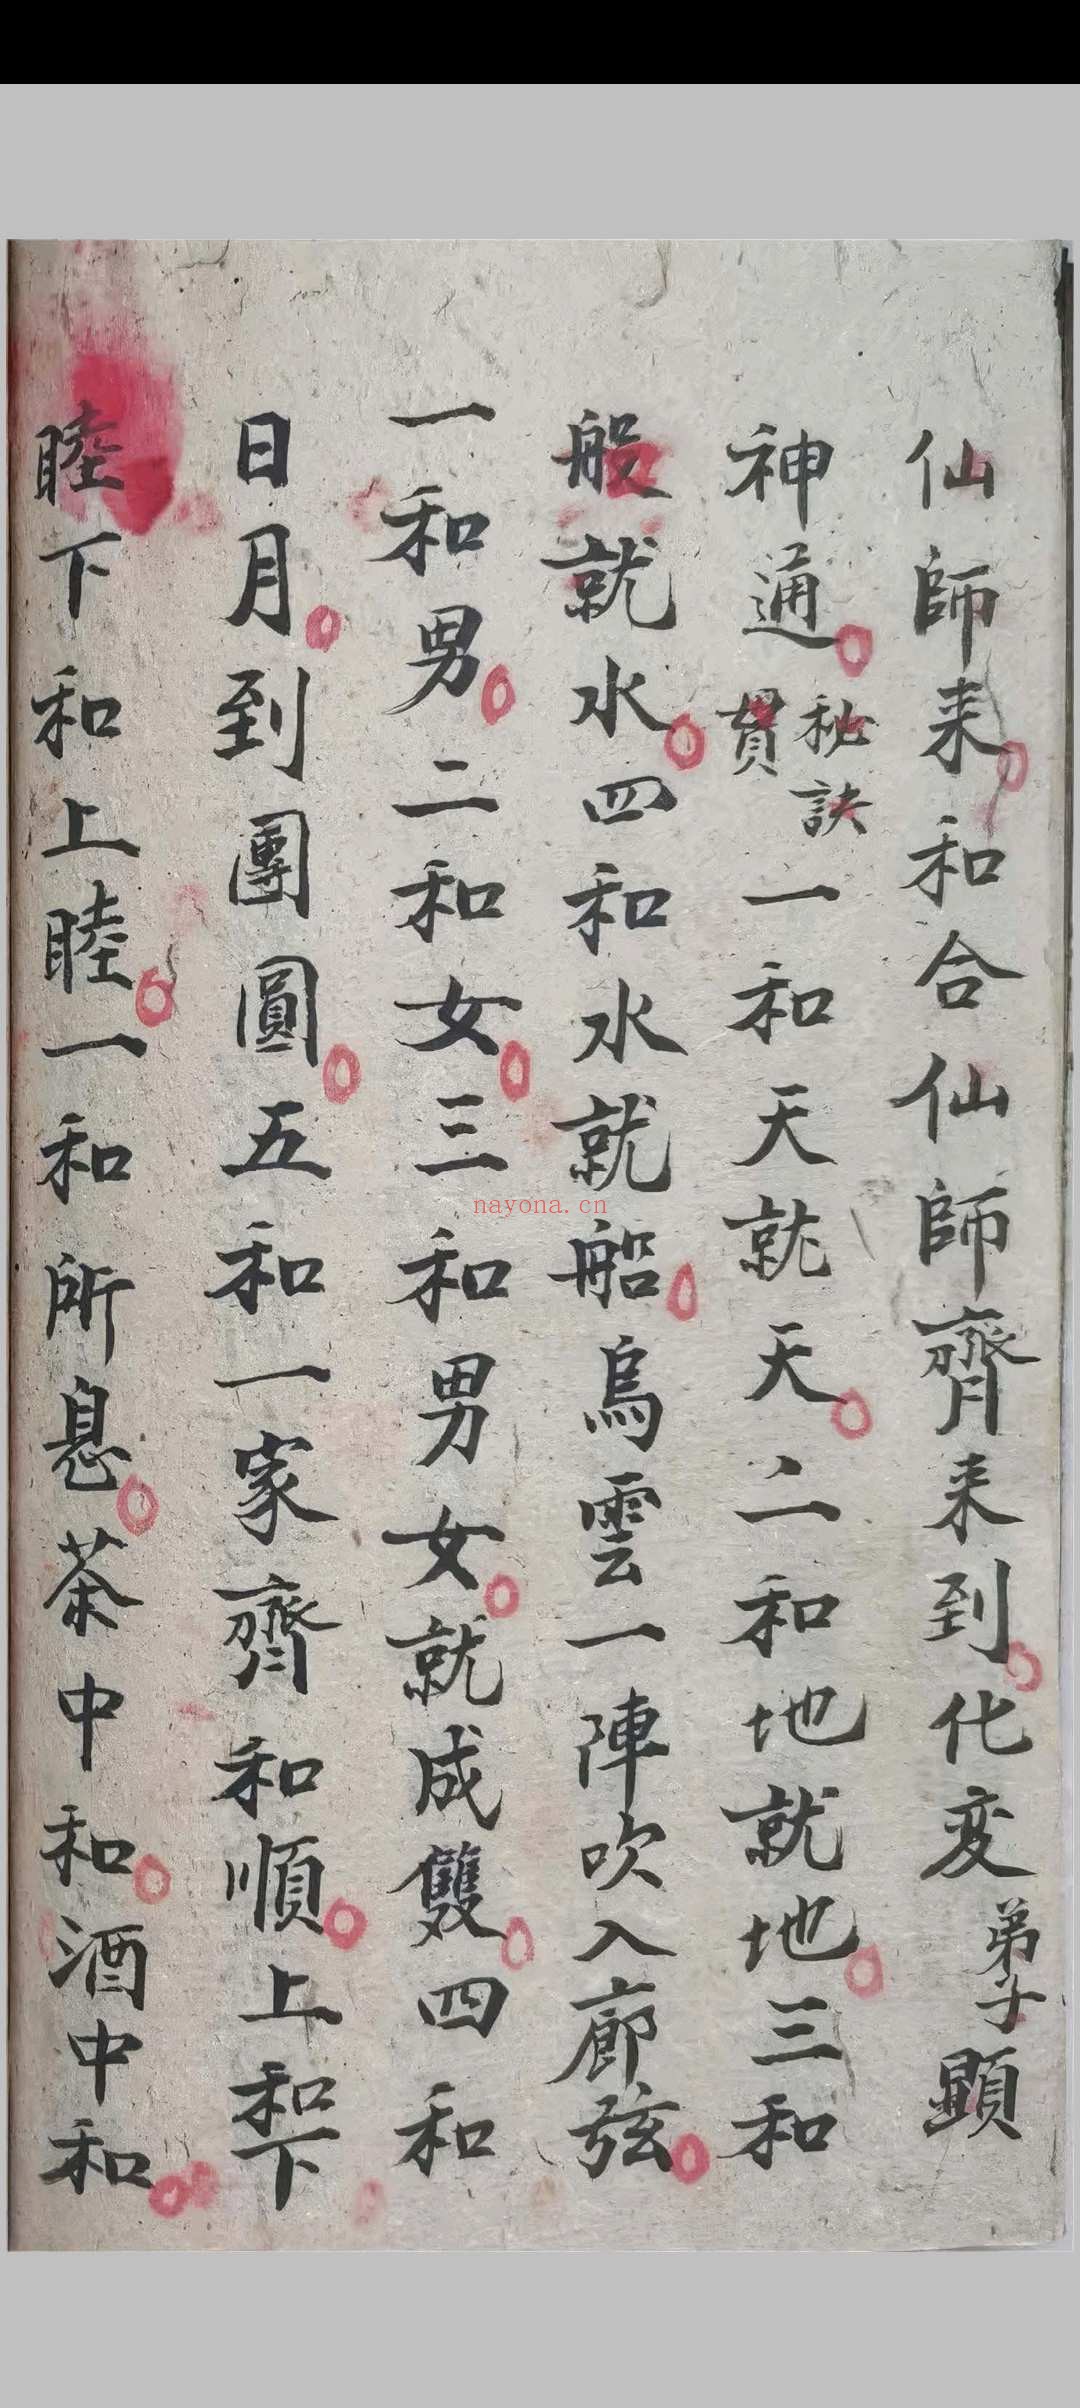 仙師来和合仙師齊来到化变弟子顕
神通秘訣一和天就天二和地就地三和
般就水四和水就船烏雲一陣吹入廊弦
一和男二和女三和男女就成雙四和
日月到團圓五和一家齊和順上和下
睦下和上睦一和所息茶中和酒中和
nayona.cn